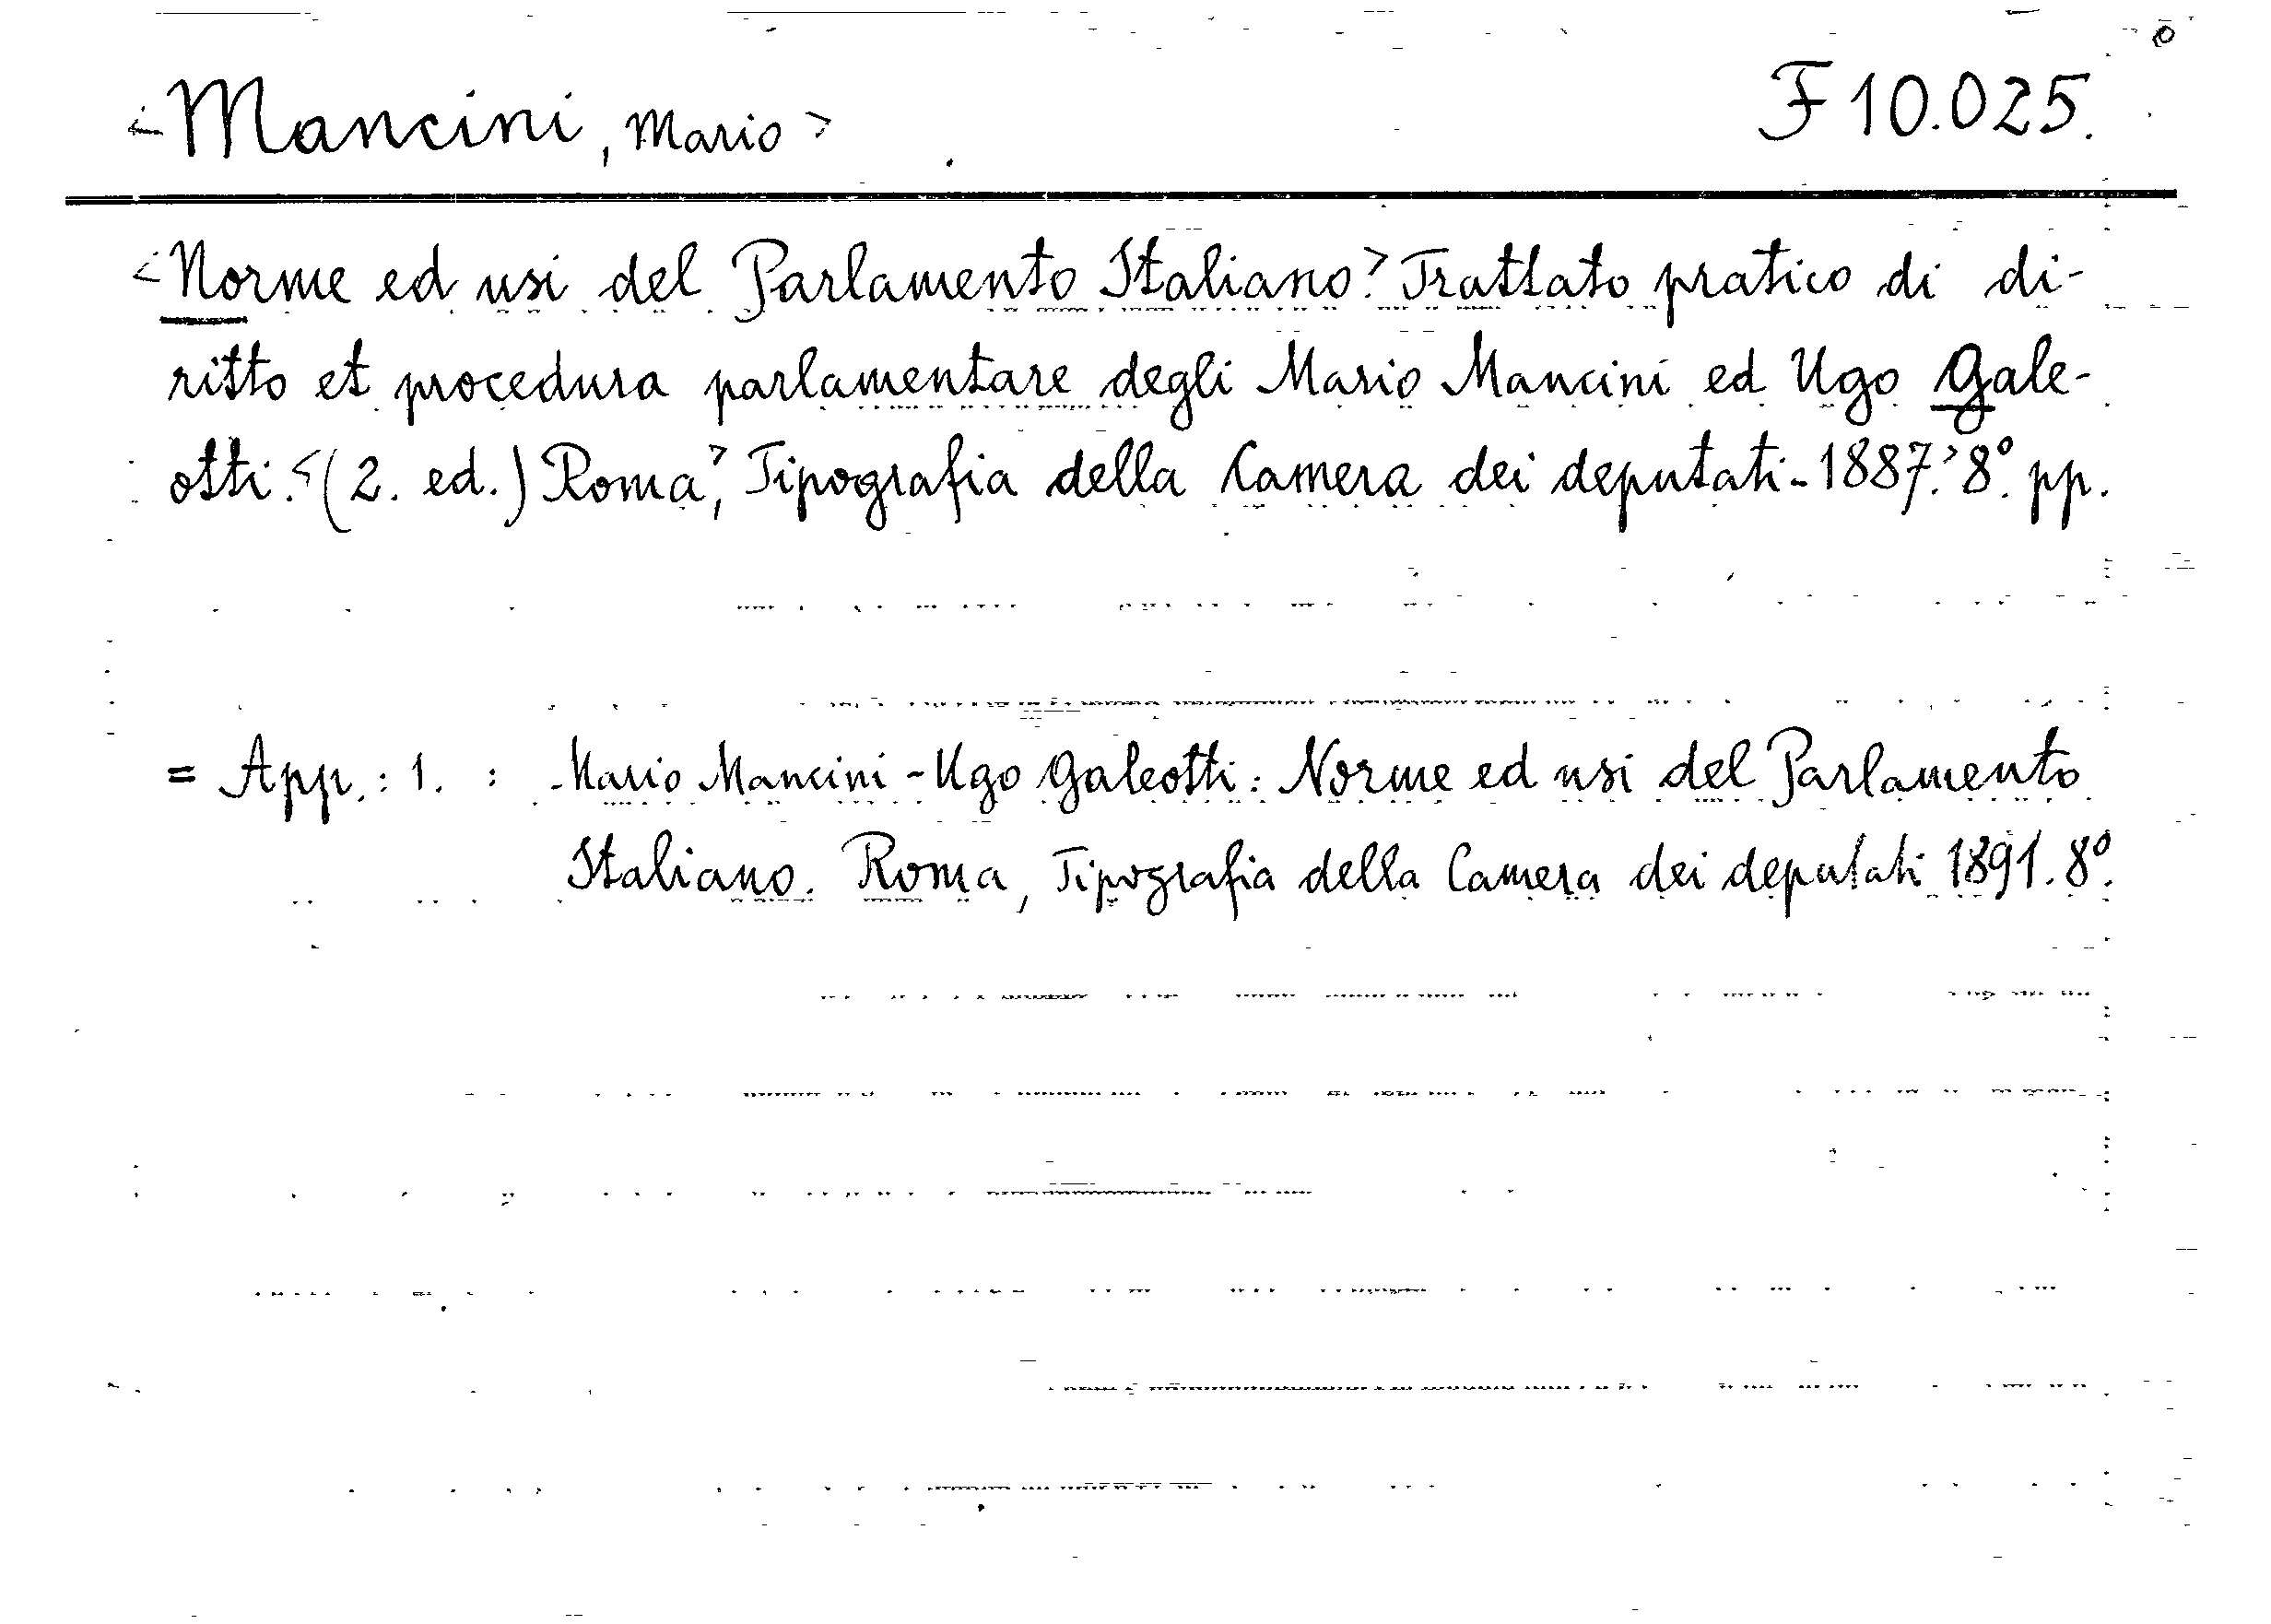 <Mancini, Mario> F 10.025.
<Norme ed usi del Parlamento Italiano.> Trattato pratico di di-
ritto et procedura parlamentare degli Mario Mancini ed Ugo Gale-
otti. <(2. ed.) Roma>, Tipografia della Camera dei deputati - 1887.> 8°. pp.
= App. : 1. : Mario Mancini - Ugo Galeotti: Norme ed usi del Parlamento
Italiano. Roma, Tipografia della Camera dei deputati 1891. 8°.